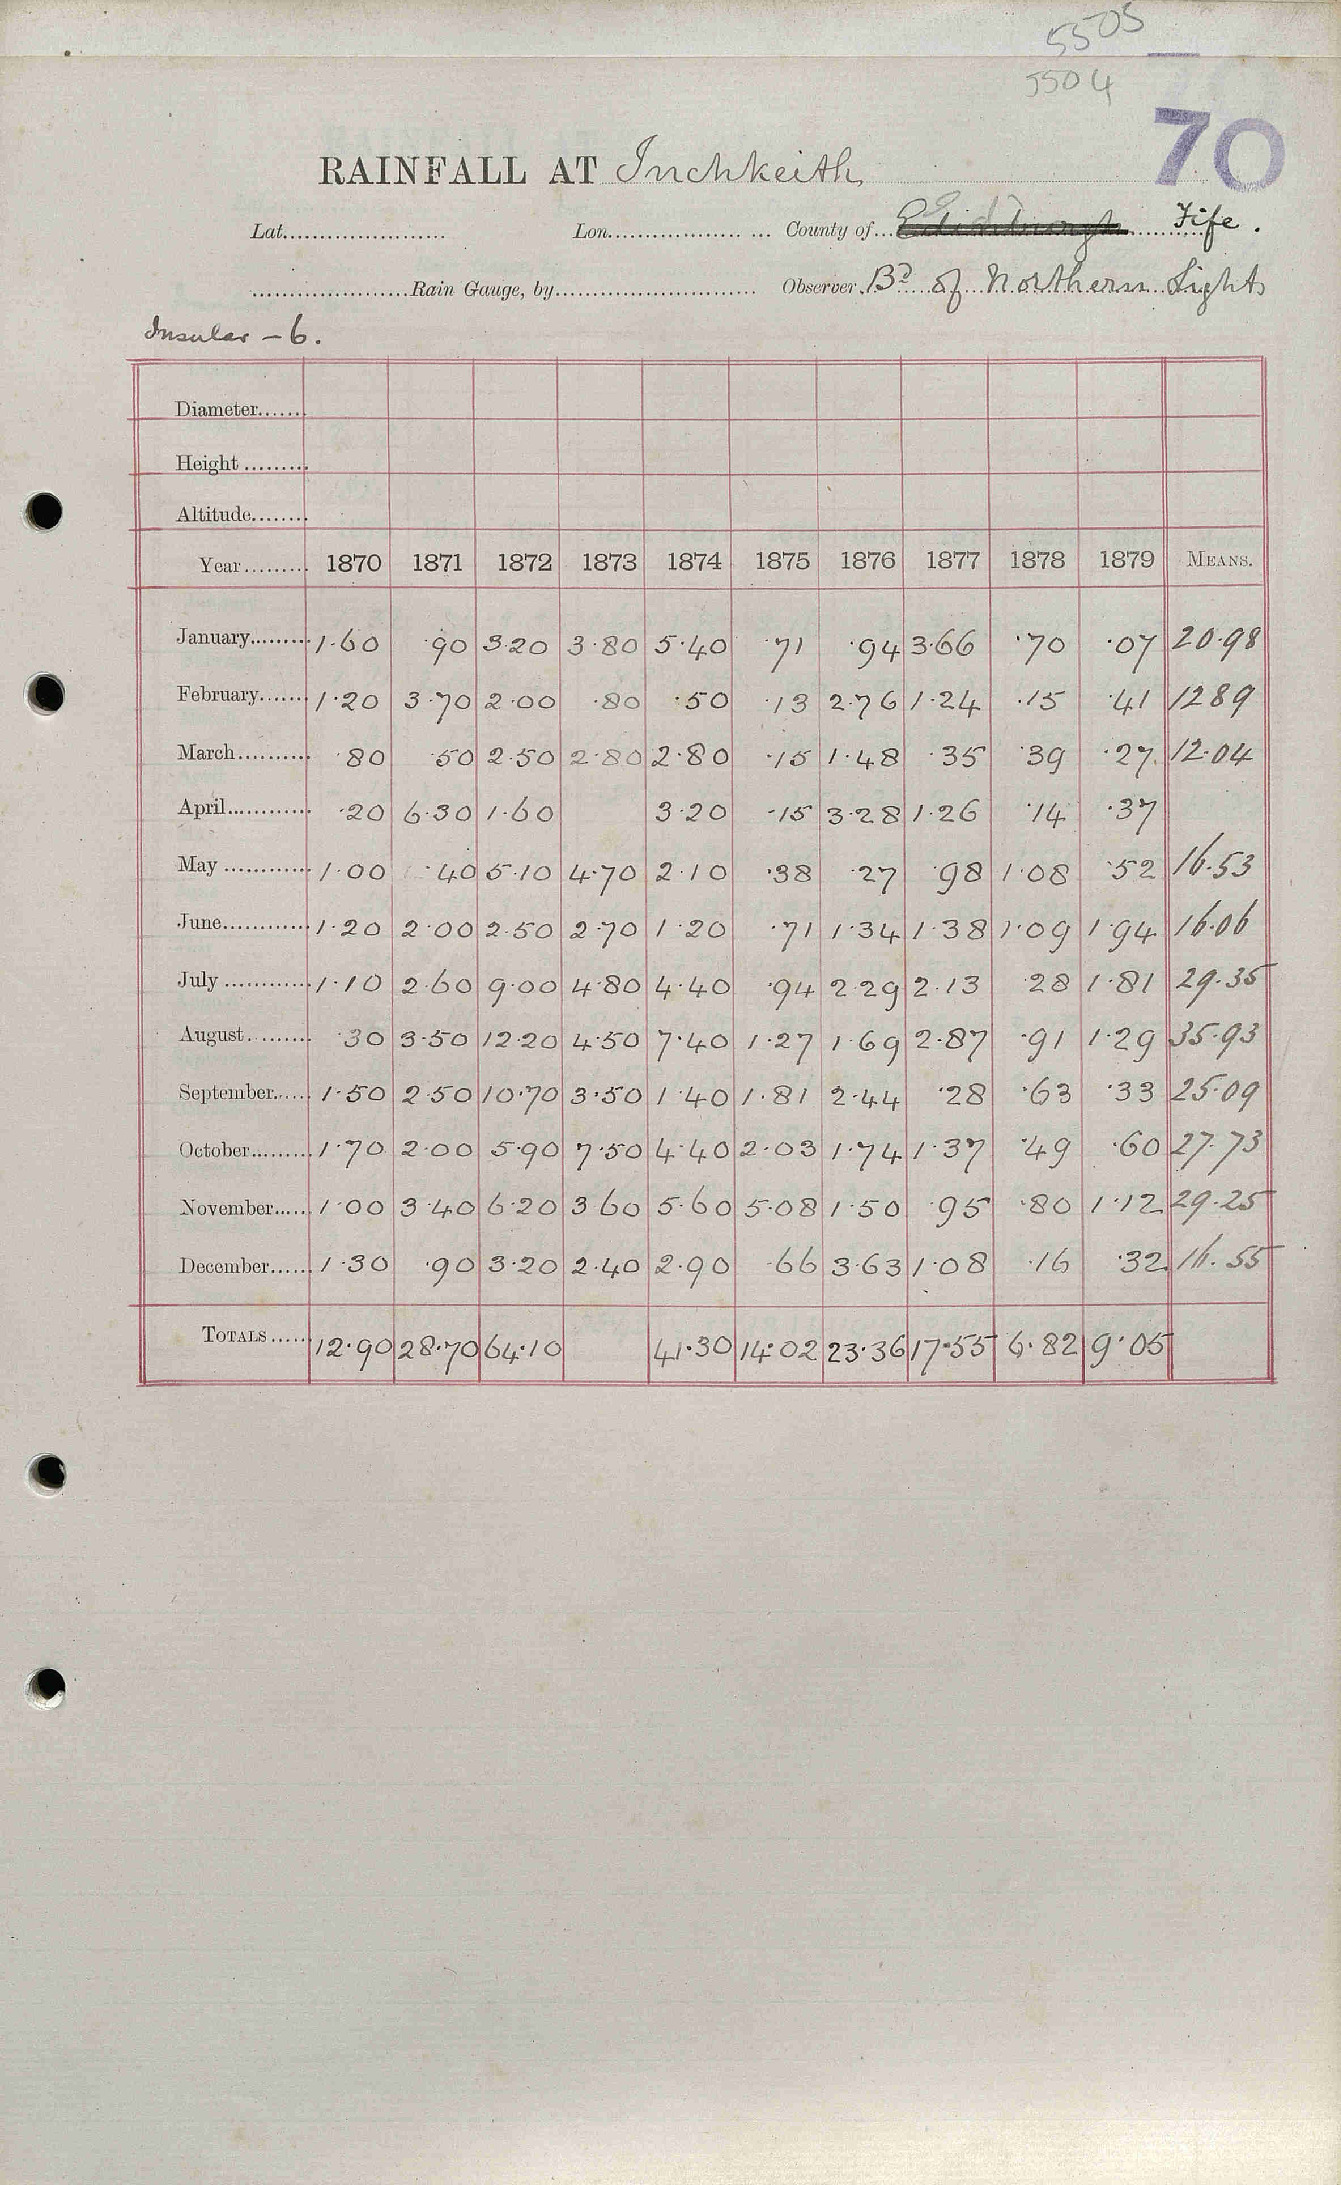 5505
5504
70
RAINFALL AT Inchkeith
Lat. Lon. County of Edinburgh Fife.
Rain Gauge, by Observer Bd of Northern Lights
Insular - 6.
Diameter
Height
Altitude
Year 1870 1871 1872 1873 1874 1875 1876 1877 1878 1879 MEANS.
January 1·60 ·90 3·20 3·80 5·40 ·71 ·94 3·66 ·70 ·07 20·98
February 1·20 3·70 2·00 ·80 ·50 ·13 2·76 1·24 ·15 ·41 1289
March ·80 ·50 2·50 2·80 2·80 ·15 1·48 ·35 ·39 ·27 12·04
April ·20 6·30 1·60 3·20 ·15 3·28 1·26 ·14 ·37
May 1·00 ·40 5·10 4·70 2·10 ·38 ·27 ·98 1·08 ·52 16·53
June 1·20 2·00 2·50 2·70 1·20 ·71 1·34 1·38 1·09 1·94 16·06
July 1·10 2·60 9·00 4·80 4·40 ·94 2·29 2·13 ·28 1·81 29·35
August ·30 3·50 12·20 4·50 7·40 1·27 1·69 2·87 ·91 1·29 35·93
September 1·50 2·50 10·70 3·50 1·40 1·81 2·44 ·28 ·63 ·33 25·09
October 1·70 2·00 5·90 7·50 4·40 2·03 1·74 1·37 ·49 ·60 27·73
November 1·00 3·40 6·20 3·60 5·60 5·08 1·50 ·95 ·80 1·12 29·25
December 1·30 ·90 3·20 2·40 2·90 ·66 3·63 1·08 ·16 ·32 16·55
TOTALS 12·90 28·70 64·10 41·30 14·02 23·36 17·55 6·82 9·05